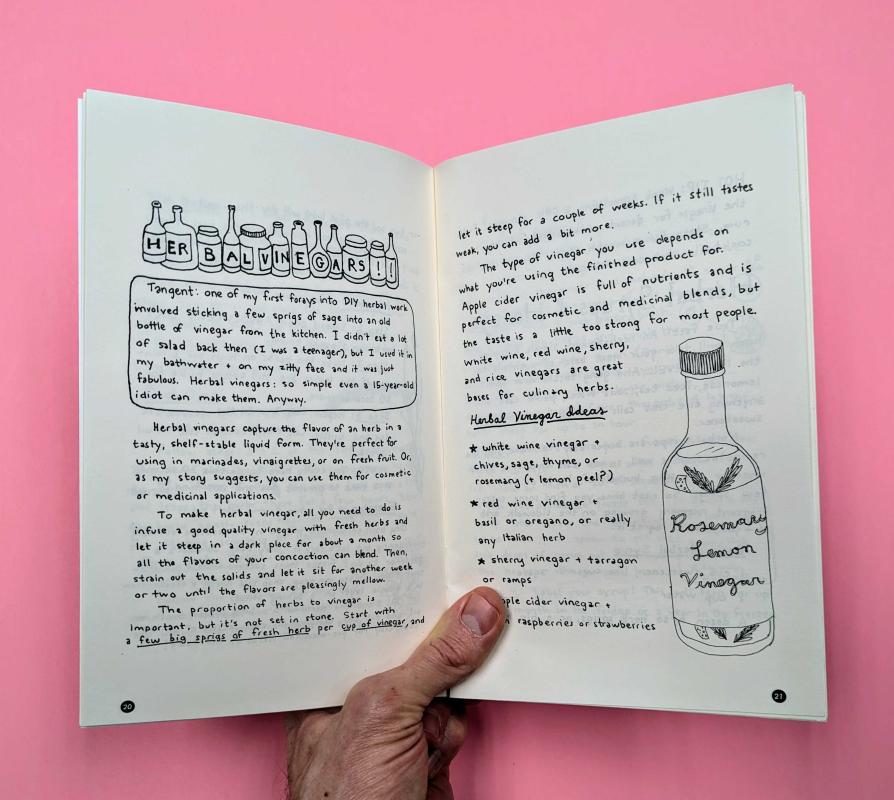 HERBAL VINEGARS!!
Tangent: one of my first forays into DIY herbal work
involved sticking a few sprigs of sage into an old
bottle of vinegar from the kitchen. I didn't eat a lot
of salad back then (I was a teenager), but I used it in
my bathwater + on my zitty face and it was just
fabulous. Herbal vinegars: so simple even a 15-year-old
idiot can make them. Anyway.
Herbal vinegars capture the flavor of an herb in a
tasty, shelf-stable liquid form. They're perfect for
using in marinades, vinaigrettes, or on fresh fruit. Or,
as my story suggests, you can use them for cosmetic
or medicinal applications.
To make herbal vinegar, all you need to do is
infuse a good quality vinegar with fresh herbs and
let it steep in a dark place for about a month so
all the flavors of your concoction can blend. Then,
strain out the solids and let it sit for another week
or two until the flavors are pleasingly mellow.
The proportion of herbs to vinegar is
important, but it's not set in stone. Start with
a few big sprigs of fresh herb per cup of vinegar, and
20
let it steep for a couple of weeks. If it still tastes
weak, you can add a bit more.
The type of vinegar you use depends on
what you're using the finished product for.
Apple cider vinegar is full of nutrients and is
perfect for cosmetic and medicinal blends, but
the taste is a little too strong for most people.
white wine, red wine, sherry,
and rice vinegars are great
bases for culinary herbs.
Herbal Vinegar Ideas
★ white wine vinegar +
chives, sage, thyme, or
rosemary (+ lemon peel?)
★ red wine vinegar +
basil or oregano, or really
any Italian herb
★ sherry vinegar + tarragon
or ramps
cider vinegar +
raspberries or strawberries
Rosemary
Lemon
Vinegar
21